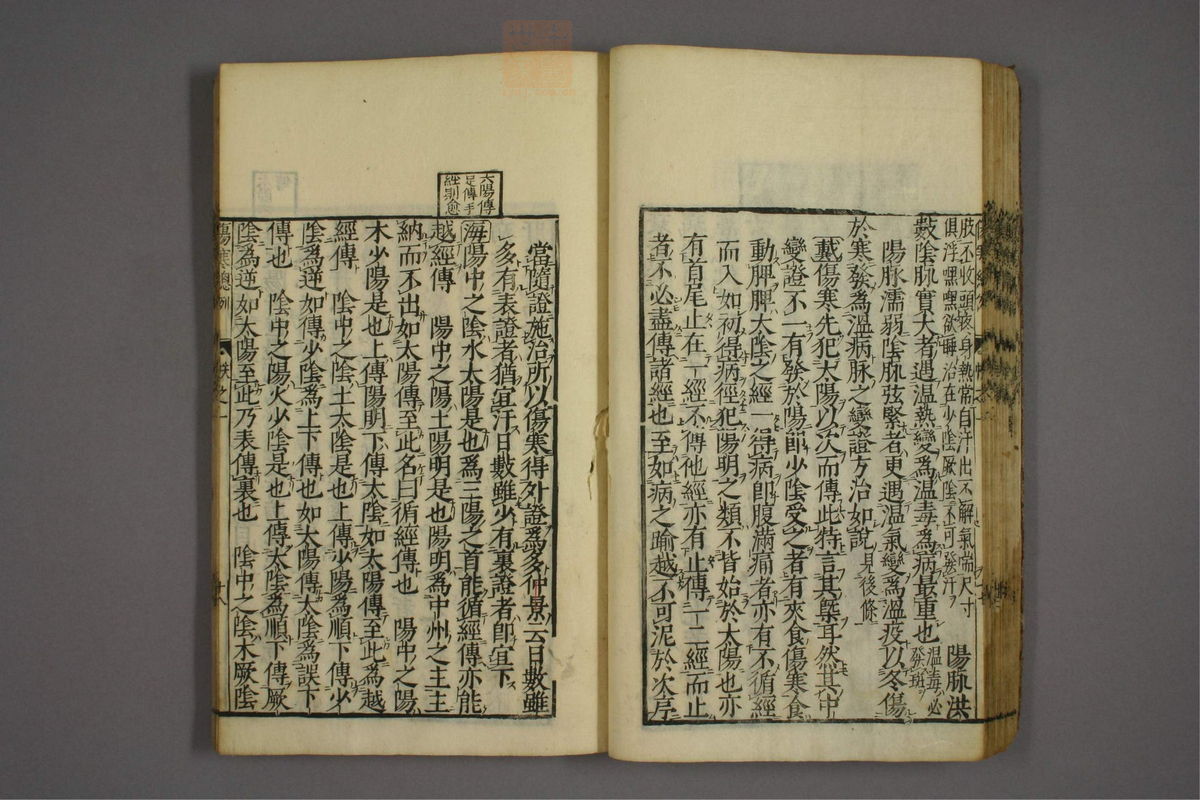 肢不收頭疼身熱常自汗出不解氣喘尺寸
俱浮嘿嘿欲睡治在少陰厥陰不可發汗
陽脉洪
數陰脉實大者遇溫熱變爲溫毒爲病最重也
溫毒必
發斑
陽脉濡弱陰脉弦緊者更遇溫氣變爲溫疫以冬傷
於寒發爲溫病脉之變證方治如說
見後條
戴傷寒先犯太陽以次而傳此特言其槩耳然其中
變證不一有發於陽即少陰受之者有夾食傷寒食
動脾脾太陰之經一得病即腹滿痛者亦有不循經
而入如初得病徑犯陽明之類不皆始於太陽也亦
有首尾止在一經不得他經亦有止傳一二經而止
者不必盡傳諸經也至如病之踰越不可泥於次序
當隨證施治所以傷寒得外證爲多仲景云日數雖
多有表證者猶宜汗日數雖少有裏證者即宜下
太陽傳
足傳手
經則愈
海陽中之陰水太陽是也爲三陽之首能循經傳亦能
越經傳　陽中之陽土陽明是也陽明爲中州之主主
納而不出如太陽傳至此名曰循經傳也　陽中之陽
木少陽是也上傳陽明下傳太陰如太陽傳至此爲越
經傳　陰中之陰土太陰是也上傳少陽爲順下傳少
陰爲逆如傳少陰爲上下傳也如太陽傳太陰爲誤下
傳也　陰中之陽火少陰是也上傳太陰爲順下傳厥
陰爲逆如太陽至此乃表傳裏也　陰中之陰木厥陰
傷寒總例
帙之一